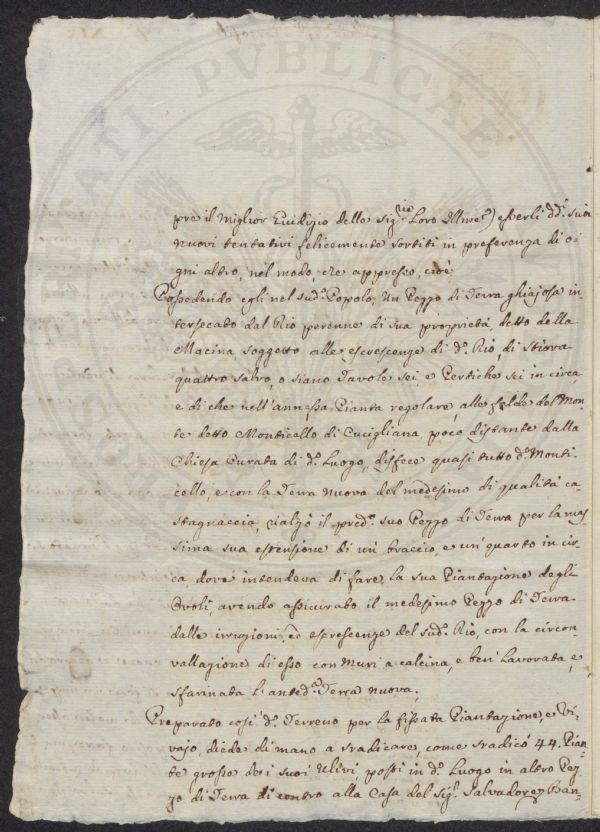 pre il miglior Giudizio delle Sig.rie Loro Illme) esserli d.i suoi
nuovi tentativi felicemente sortiti in preferenza di o-
gni altro, nel modo, che appresso, cioè
Possedendo egli nel sud.o Popolo, un Pezzo di Terra ghiajosa in-
tersecato dal Rio perenne di sua proprietà, detto della
Macina soggetto alle escrescenze di d.o Rio, di stiora
quattro salvo, o siano Tavole sei, e Pertiche sei in circa
e di che nell'annessa Pianta regolare, alle falde del Mon-
te detto Monticello di Cucigliana, poco distante dalla
Chiesa Curata di d.o Luogo, disfece quasi tutto d.o Monti-
cello, e con la Terra nuova del medesimo di qualità ca-
stagnaccia, rialzò il pred.o suo Pezzo di Terra per la mas-
sima sua estensione di un braccio, e un quarto in cir-
ca, dove intendeva di fare la sua Piantazione degli
Ovoli, avendo assicurato il medesimo Pezzo di Terra
dalle irruzioni, ed escrescenze del sud.o Rio, con la circon-
vallazione di esso con Muri a calcina, e ben lavorata, e
sfarinata l'anted.a Terra nuova;
Preparato così d.o Terreno per la fissata Piantazione, e Vi-
vajo, diede di mano a sradicare, come sradicò 44. Pian-
te grosse dei suoi Ulivi, posti in d.o Luogo in altro Pez-
zo di Terra di contro alla Casa del Sig.r Salvadore